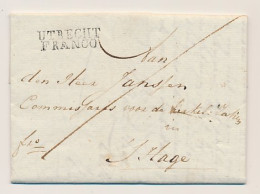 UTRECHT
FRANCO
Aan
den Heer Janssen
Commissaris voor de
en
fco
S'Hage